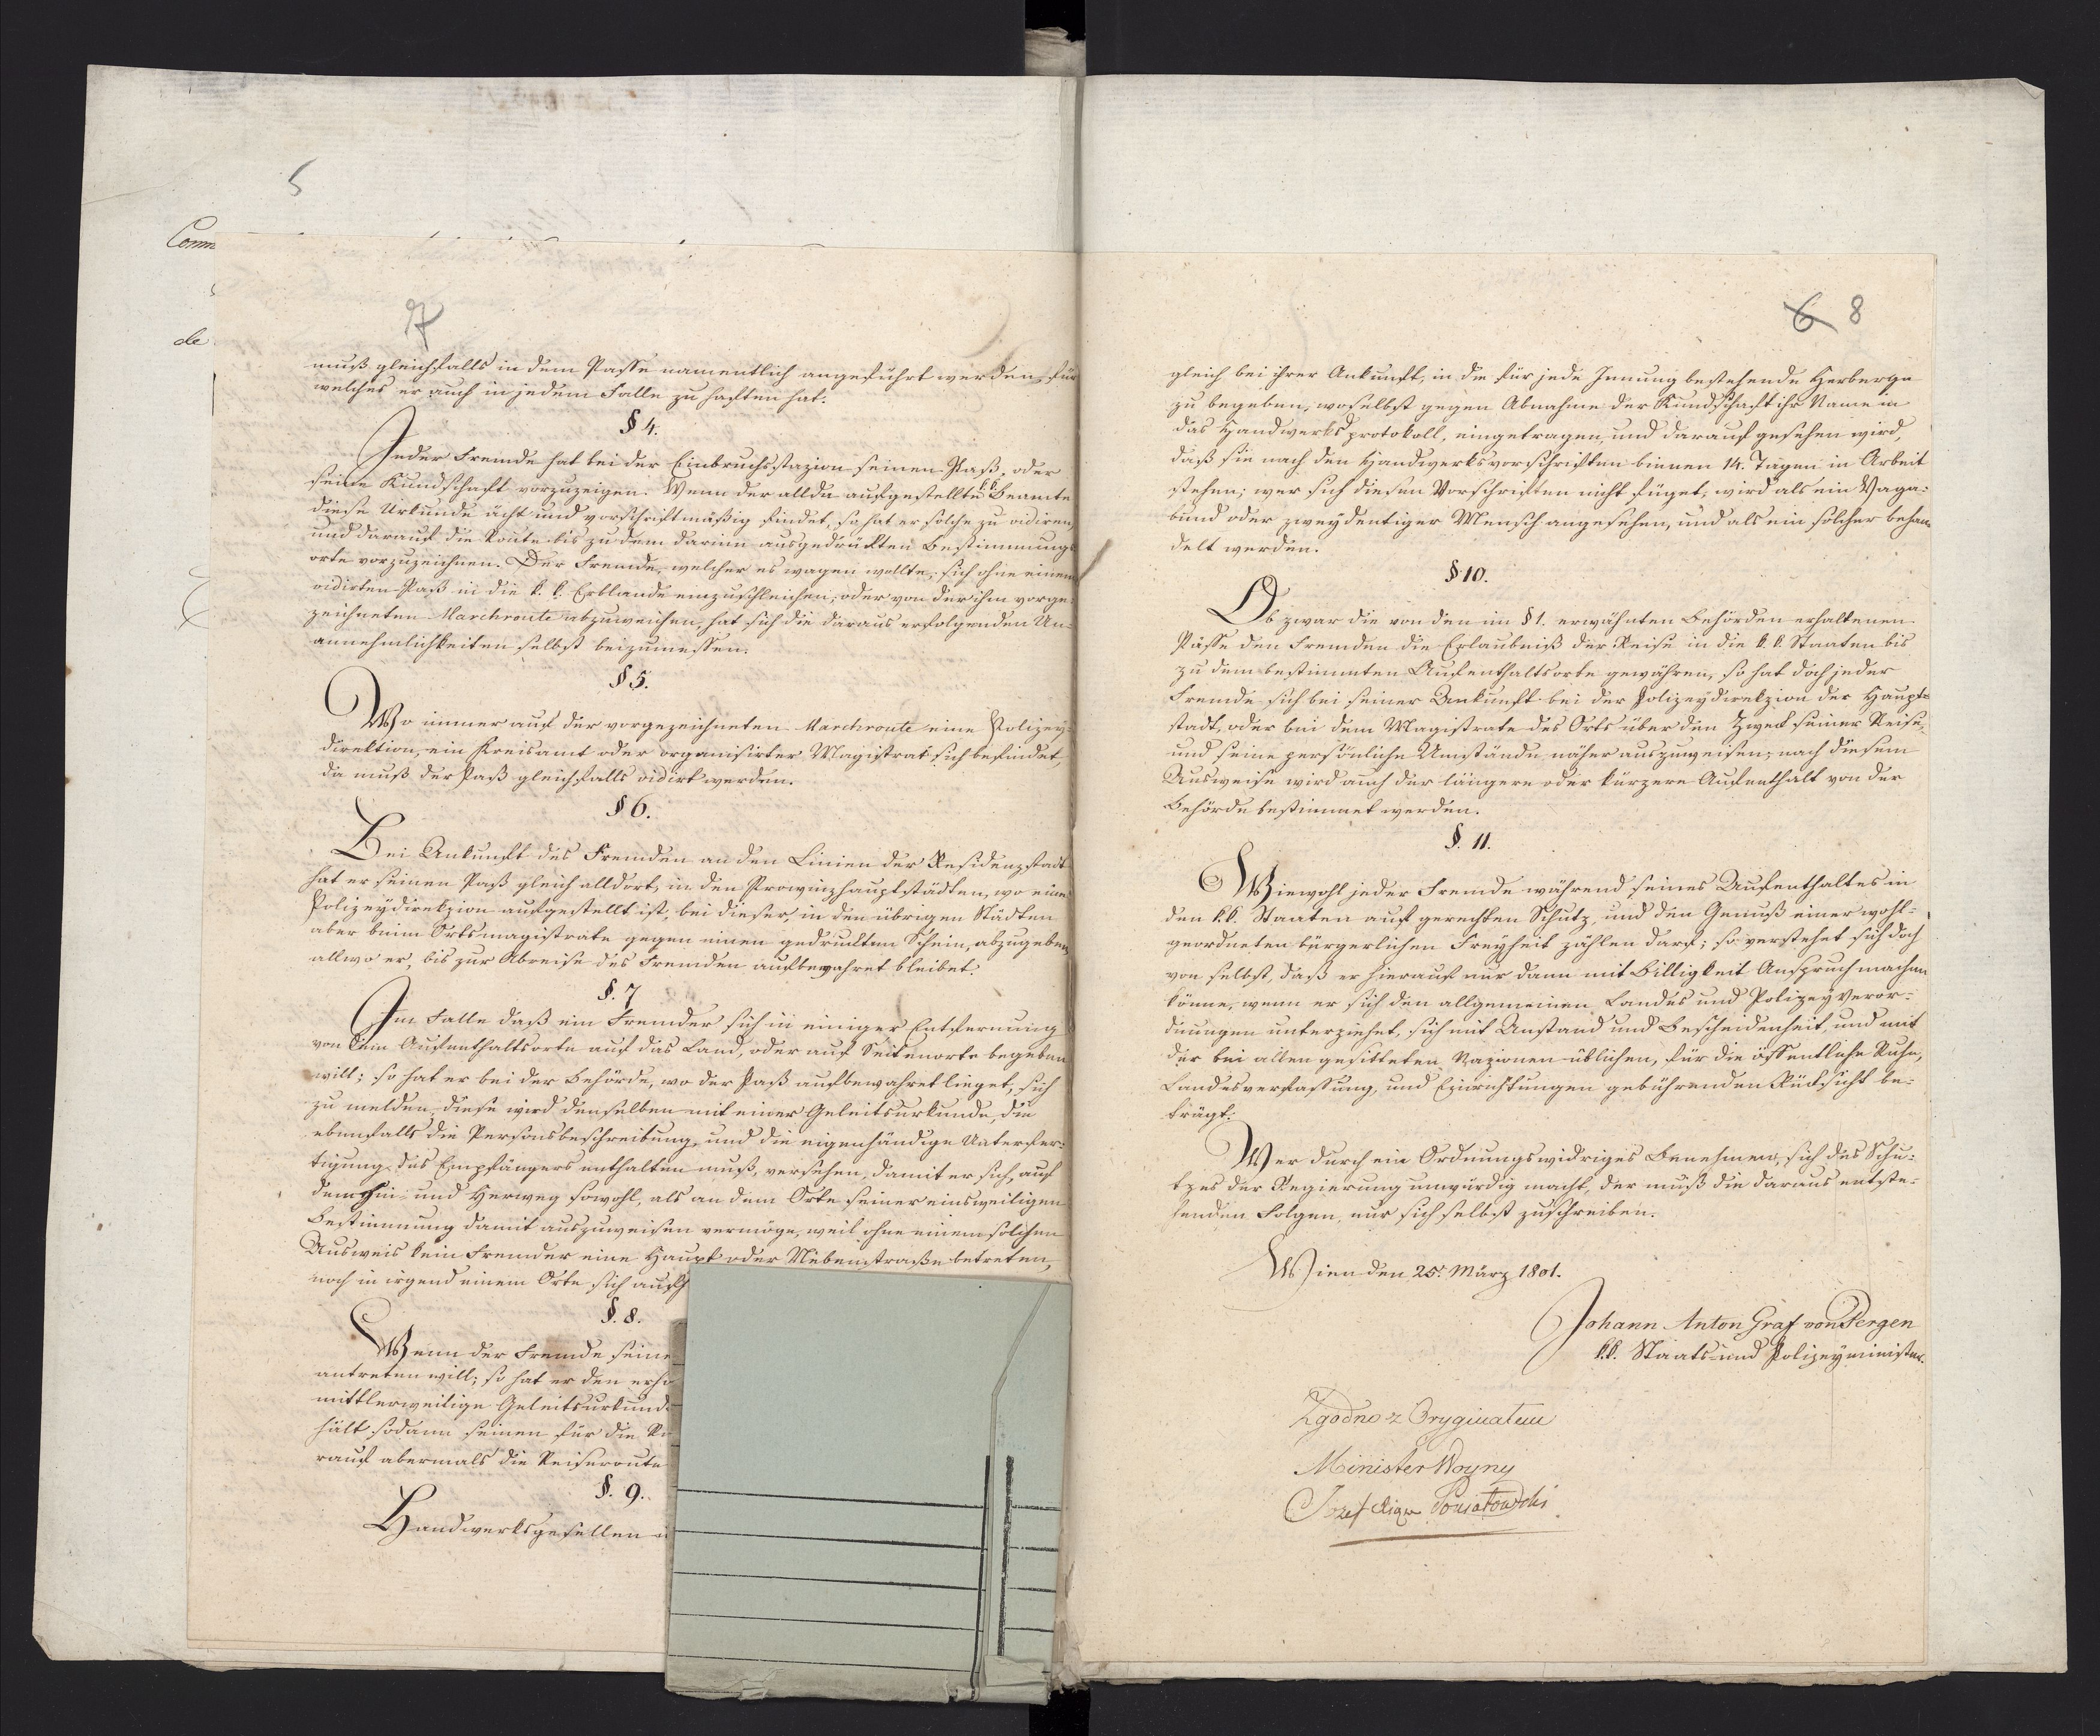 5
Comm
de
7
muß gleichfalls in dem Passe namentlich angeführt werden, für
welches er auch in jedem Falle zu haften hat.
§ 4.
Jeder Fremde hat bei der Einbruchsstazion seinen Paß, oder
seine Kundschaft vorzuzeigen. Wenn der allda aufgestellte k.k. Beamte
diese Urkunde ächt und vorschriftmäßig findet, so hat er solche zu vidiren,
und darauf die Route bis zu dem darinn ausgedrükten Bestimmungs
orte vorzuzeichnen. Der Fremde, welcher es wagen wollte, sich ohne einem
vidirten Paß in die k. k. Erblande einzuschleichen, oder von der ihm vorge-
zeichneten Marchroute abzuweichen, hat sich die daraus erfolgenden Un-
annehmlichkeiten selbst beizumessen.
§ 5.
Wo immer auf der vorgezeichneten Marchroute eine Polizey-
direktion, ein Kreisamt oder organisirter Magistrat sich befindet,
da muß der Paß gleichfalls vidirt werden.
§ 6.
Bei Ankunft des Fremden an den Linien der Residenzstadt
hat er seinen Paß gleich alldort, in den Provinzhauptstädten, wo eine
Polizeydirekzion aufgestellt ist, bei dieser, in den übrigen Städten
aber beim Ortsmagistrate gegen einen gedruckten Schein, abzugeben,
allwo er, bis zur Abreise des Fremden aufbewahret bleibet.
§. 7
Im Falle daß ein Fremder sich in einiger Entfernung
von dem Aufenthaltsorte auf das Land, oder auf Seitenorte begeben
will; so hat er bei der Behörde, wo der Paß aufbewahret lieget, sich
zu melden, diese wird denselben mit einer Geleitsurkunde, die
ebenfalls die Personsbeschreibung, und die eigenhändige Unterfer-
tigung des Empfängers enthalten muß, versehen, damit er sich, auf
dem Hin- und Herweg sowohl, als an dem Orte seiner einsweiligen
Bestimmung damit auszuweisen vermöge, weil ohne einem solchen
Ausweis kein Fremder eine Haupt oder Nebenstraße betreten,
noch in irgend einem Orte sich aufh
§. 8.
Wenn der Fremde seine
antreten will; so hat er den erho
mittlerweilige Geleitsurkund
hält sodann seinen für die Rü
rauf abermals die Reiseroute
§. 9.
Handwerksgesellen
6 8
gleich bei ihrer Ankunft, in die für jede Innung bestehende Herberge
zu begeben, woselbst gegen Abnahme der Kundschaft ihr Name in
das Handwerksprotokoll, eingetragen, und darauf gesehen wird,
daß sie nach den Handwerksvorschriften binnen 14. Tagen in Arbeit
stehen; wer sich diesen Vorschriften nicht füget, wird als ein Vaga-
bund oder zweydeutiger Mensch angesehen, und als ein solcher behan
delt werden.
§ 10.
Ob zwar die von den im § 1. erwähnten Behörden erhaltenen
Pässe den Fremden die Erlaubniß der Reise in die k. k. Staaten bis
zu dem bestimmten Aufenthaltsorte gewähren, so hat doch jeder
Fremde sich bei seiner Ankunft bei der Polizeydirekzion der Haupt-
stadt, oder bei dem Magistrate des Orts über den Zweck seiner Reise,
und seine persönliche Umstände näher auszuweisen; nach diesem
Ausweise wird auch der längere oder kürzere Aufenthalt von der
Behörde bestimmet werden.
§. 11.
Wiewohl jeder Fremde während seines Aufenthaltes in
den k.k. Staaten auf gerechten Schutz, und den Genuß einer wohl-
geordneten bürgerlichen Freyheit zählen darf; so verstehet sich doch
von selbst, daß er hierauf nur dann mit Billigkeit Anspruch machen
könne, wenn er sich den allgemeinen Landes und Polizey Veror-
dnungen unterziehet, sich mit Anstand und Bescheidenheit, und mit
der bei allen gesitteten Nazionen üblichen, für die öffentliche Ruhe,
Landesverfassung, und Einrichtungen gebührenden Rücksicht be-
trägt.
Wer durch ein Ordnungswidriges Benehmen, sich des Schu-
tzes der Regierung unwürdig macht, der muß die daraus entste-
henden Folgen, nur sich selbst zuschreiben.
Wien den 25t. März 1801.
Johann Anton Graf von Pergen
k.k. Staats- und Polizeyminister.
Zgodno z Oryginałem
Minister Woyny
Jozef Xiąże Poniatowski